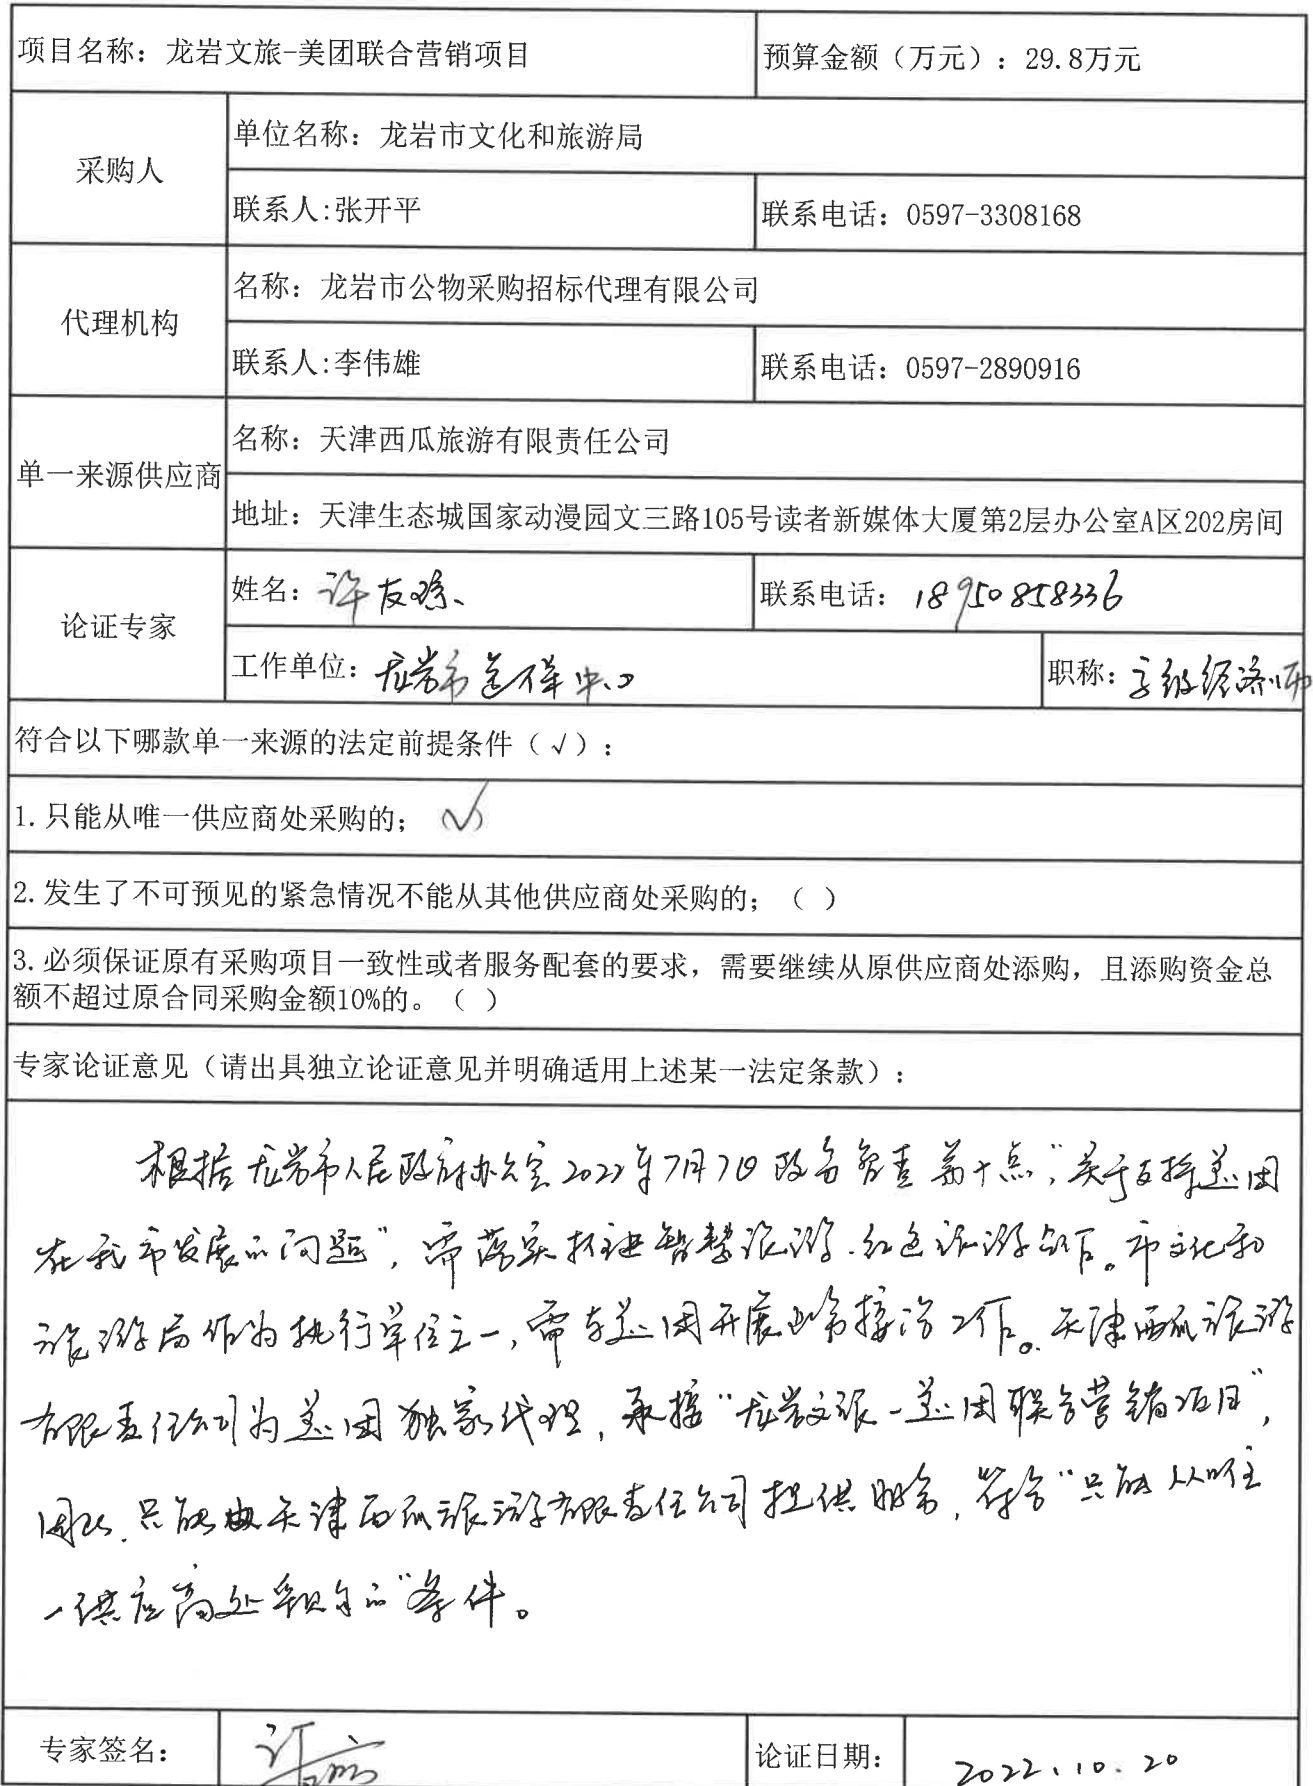 项目名称：龙岩文旅-美团联合营销项目
预算金额（万元）：29.8万元
采购人
单位名称：龙岩市文化和旅游局
联系人:张开平
联系电话：0597-3308168
代理机构
名称：龙岩市公物采购招标代理有限公司
联系人:李伟雄
联系电话：0597-2890916
单一来源供应商
名称：天津西瓜旅游有限责任公司
地址：天津生态城国家动漫园文三路105号读者新媒体大厦第2层办公室A区202房间
论证专家
姓名：许友琼
联系电话：18950858336
工作单位：龙岩市医保中心
职称：高级经济师
符合以下哪款单一来源的法定前提条件（√）：
1.只能从唯一供应商处采购的；（√）
2.发生了不可预见的紧急情况不能从其他供应商处采购的；（ ）
3.必须保证原有采购项目一致性或者服务配套的要求，需要继续从原供应商处添购，且添购资金总
额不超过原合同采购金额10%的。（ ）
专家论证意见（请出具独立论证意见并明确适用上述某一法定条款）：
根据龙岩市人民政府办公室2022年7月7日政务督查第十点，“关于支持美团
在我市发展的问题”，需落实推进智慧旅游、红色旅游合作。市文化和
旅游局作为执行单位之一，需与美团开展业务接洽工作。天津西瓜旅游
有限责任公司为美团独家代理，承接“龙岩文旅-美团联合营销项目”，
因此，只能由天津西瓜旅游有限责任公司提供服务，符合“只能从唯
一供应商处采购的”条件。
专家签名：
论证日期：
2022.10.20